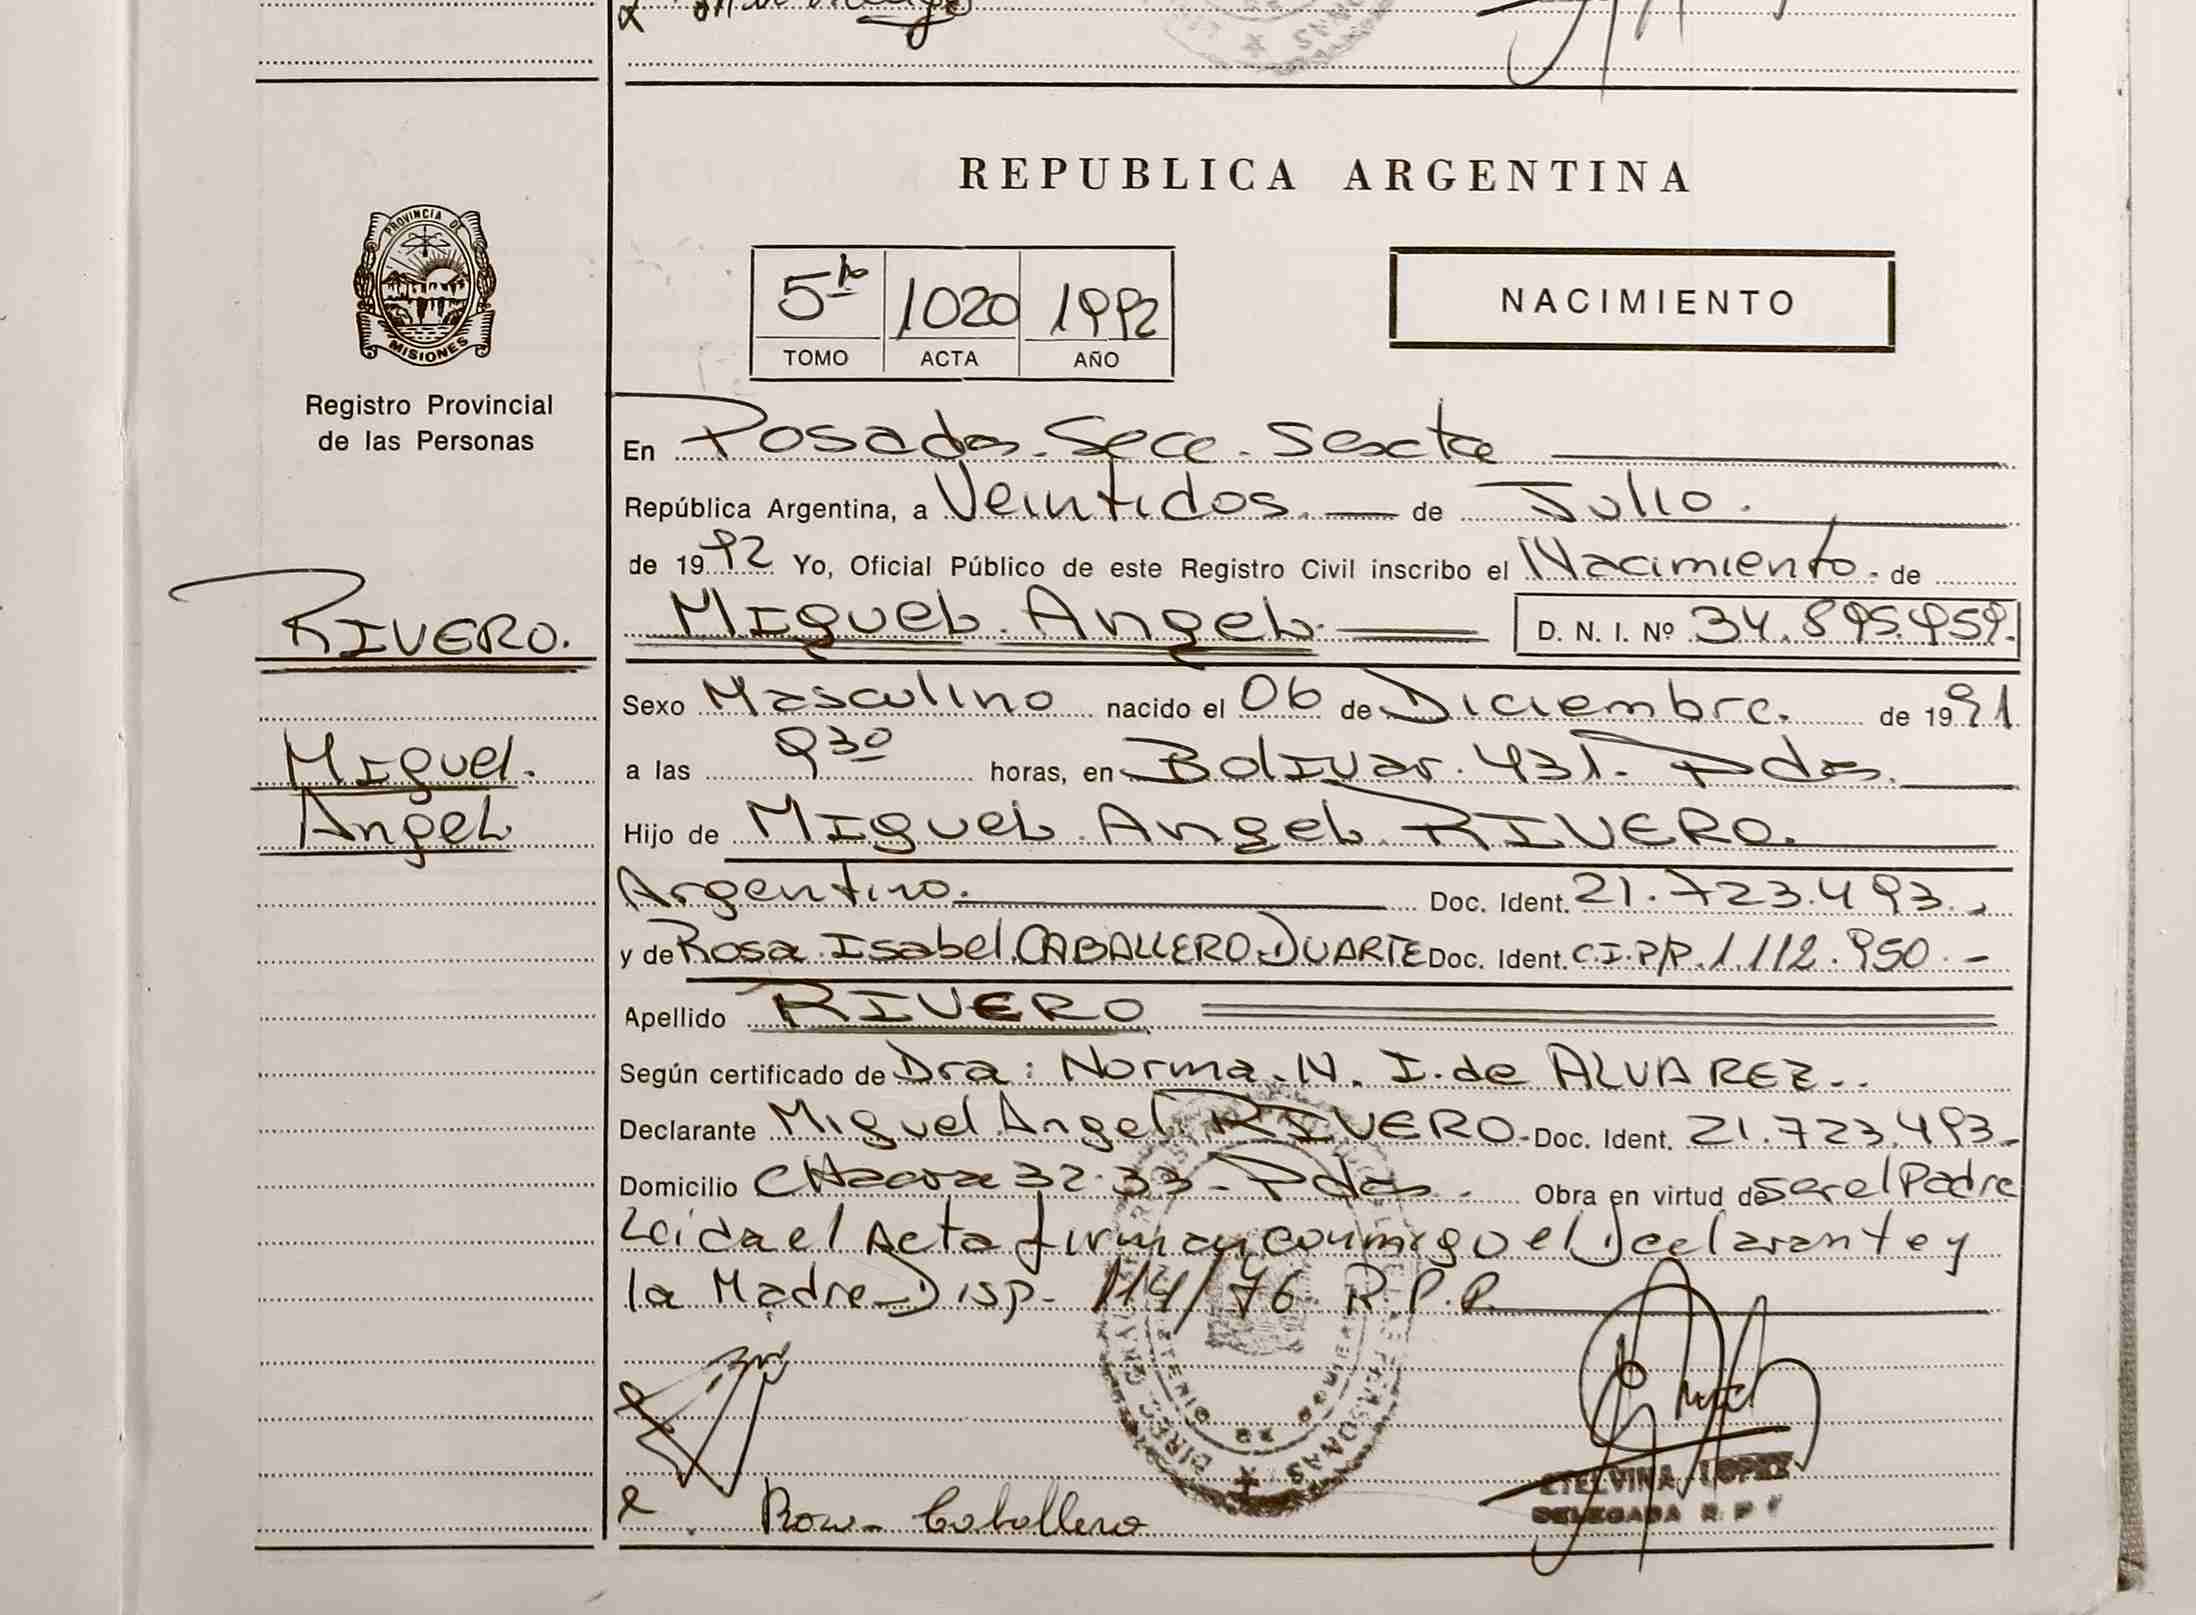 REPUBLICA ARGENTINA
PROVINCIA DE
MISIONES
Registro Provincial
de las Personas
5to 1020 1992
TOMO ACTA AÑO
NACIMIENTO
En Posadas. Secc. Sexta
República Argentina, a Veintidos. de Julio.
de 1992 Yo, Oficial Público de este Registro Civil inscribo el Nacimiento. de
RIVERO.
Miguel. Angel. D. N. I. Nº 34.895.959.
Sexo Masculino nacido el 06 de Diciembre. de 1991
Miguel.
Angel
a las 930 horas, en Bolivar. 431. Pdas.
Hijo de Miguel. Angel. RIVERO.
Argentino. Doc. Ident. 21.723.493.
y de Rosa. Isabel. CABALLERO DUARTE Doc. Ident. C.I.P/P. 1.112.950. -
Apellido RIVERO
Según certificado de Dra: Norma. N. I. de ALVAREZ..
Declarante Miguel Angel RIVERO. Doc. Ident. 21.723.493.
Domicilio CHacra 32.33 - Pdas. Obra en virtud de ser el Padre
Leida el Acta firman conmigo el Declarante y
la Madre Disp. 114/76. R.P.P.
Rosa Caballero
ETELVINA LOPEZ
DELEGADA R. P. P.